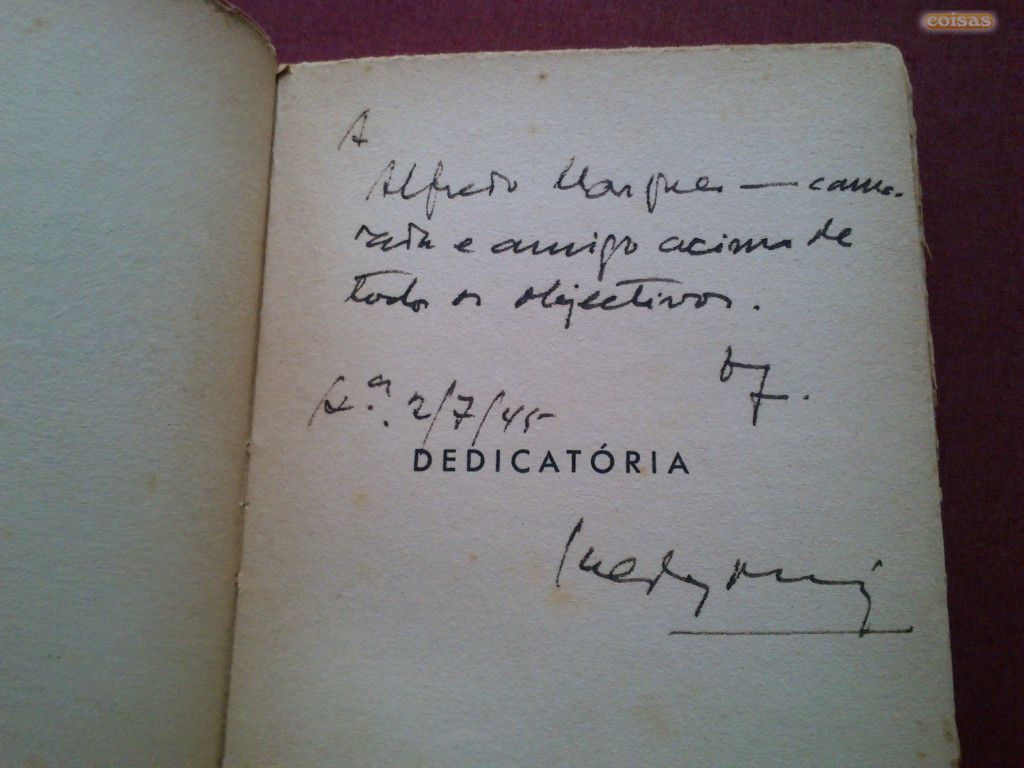 coisas
A
Alfredo Marques — cama-
rada e amigo acima de
todos os objectivos.
2/7/45
DEDICATÓRIA